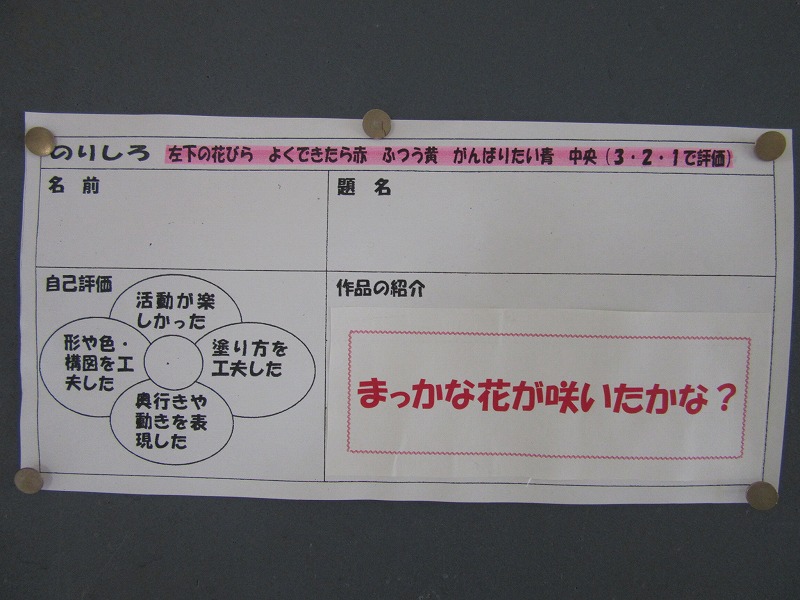 のりしろ 左下の花びら よくできたら赤 ふつう黄 がんばりたい青 中央(3・2・1で評価)
名 前
題 名
自己評価
活動が楽
しかった
形や色・
構図を工
夫した
塗り方を
工夫した
奥行きや
動きを表
現した
作品の紹介
まっかな花が咲いたかな？